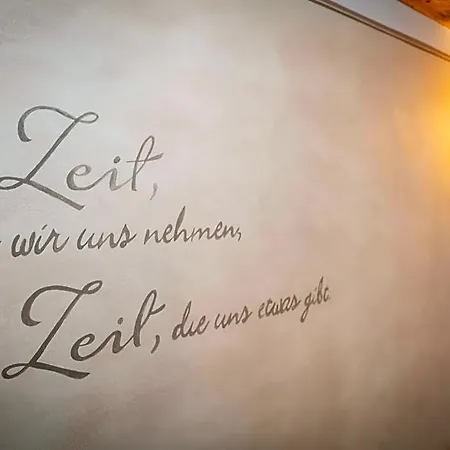 Zeit,
wir uns nehmen,
Zeit, die uns etwas gibt